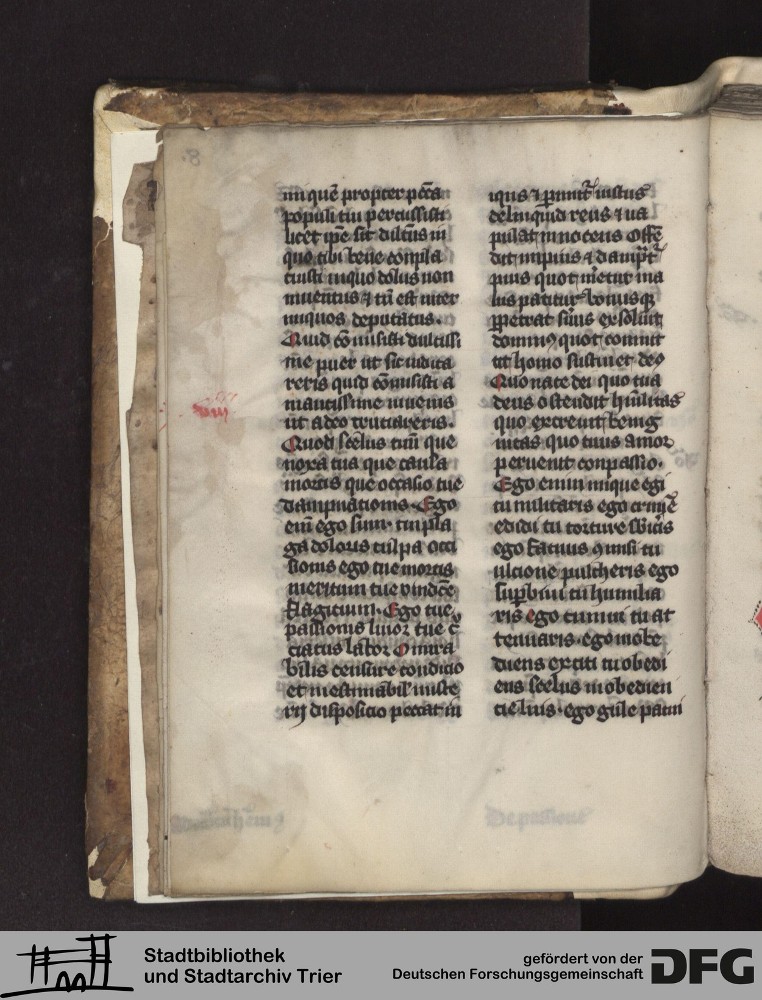 mi quē propter pccā
populi tui percussisti
licet ipē sit dilcūs in
quo tibi bene conpla
cuisti iniquo dolus non
inuentus ⁊ tn̄ est inter
iniquos deputatus.
Quid cōmisisti dulcissi
me puer ut sic iudica
reris quid cōmisisti a
mantissime iuuenis
ut adeo tractareris.
Quod scelus tuū que
noxa tua que causa
mortis que occasio tue
dampnationis. Ego
enī ego sum. tui pla
ga doloris culpa occi
sionis ego tue mortis
meritum tue vindicē
flagicium. Ego tue
passionis liuor tue c̄
ciatus labor O mira
bilis censure condicio
et inestimabil' miste
rij disposicio peccat in
iqus ⁊ punit' iustus
delinquid reus ⁊ ua
pulat innocens Offē
dit impius ⁊ dampt'
pius quot met'ur ma
lus patitur bonus qd
ꝑpetrat s'uus exsoluit
dominꝰ quot comit
tit homo sustinet deꝰ
Quo nate dei quo tua
deus ostendit hūilitas
quo excreuit benig
nitas quo tuus amor
peruenit conpassio.
Ego enim inique egi
tu militaris ego crimē
edidi tu torture sbīcis
ego fatuus ꝯmisi tu
ulcione pulcheris ego
supbiui tu humilia
ris ego tumui tu at
tenuaris. ego inobe
diens extiti tu obedi
ens scelus inobedien
cie luis. ego gule parui
De passione
Stadtbibliothek
und Stadtarchiv Trier
gefördert von der
Deutschen Forschungsgemeinschaft
DFG